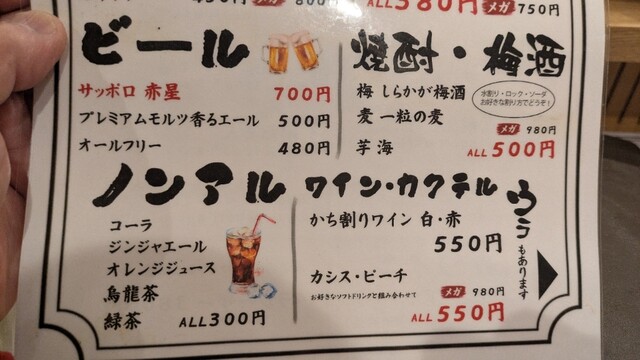 ALL 380円 メガ 750円
ビール
サッポロ 赤星 700円
プレミアムモルツ香るエール 500円
オールフリー 480円
焼酎・梅酒
梅 しらかが梅酒
麦 一粒の麦
水割り・ロック・ソーダ
お好きな割り方でどうぞ!
メガ 980円
芋 海 ALL 500円
ノンアル
コーラ
ジンジャエール
オレンジジュース
烏龍茶
緑茶 ALL 300円
ワイン・カクテル
かち割りワイン 白・赤
550円
カシス・ピーチ
お好きなソフトドリンクと組み合わせて
メガ 980円
ALL 550円
ウラ
もあります